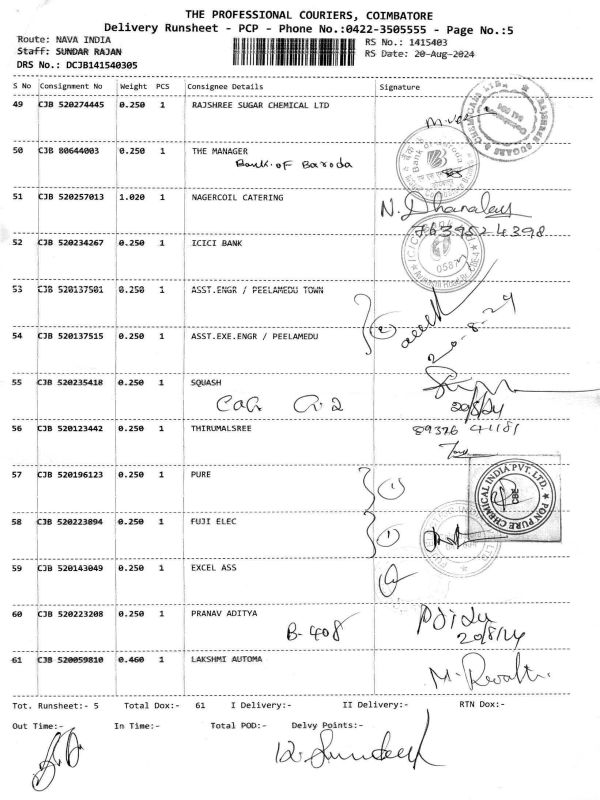 THE PROFESSIONAL COURIERS, COIMBATORE
Delivery Runsheet - PCP - Phone No.:0422-3505555 - Page No.:5
Route: NAVA INDIA RS No.: 1415403
Staff: SUNDAR RAJAN RS Date: 20-Aug-2024
DRS No.: DCJB141540305
S No Consignment No Weight PCS Consignee Details Signature
49 CJB 520274445 0.250 1 RAJSHREE SUGAR CHEMICAL LTD
50 CJB 80644003 0.250 1 THE MANAGER
Bank of Baroda
51 CJB 520257013 1.020 1 NAGERCOIL CATERING
7639524398
52 CJB 520234267 0.250 1 ICICI BANK
53 CJB 520137501 0.250 1 ASST.ENGR / PEELAMEDU TOWN
54 CJB 520137515 0.250 1 ASST.EXE.ENGR / PEELAMEDU
20-8-24
55 CJB 520235418 0.250 1 SQUASH
20/8/24
56 CJB 520123442 0.250 1 THIRUMALSREE
89376 41181
57 CJB 520196123 0.250 1 PURE
PON PURE CHEMICAL INDIA PVT. LTD.
CBE
58 CJB 520223894 0.250 1 FUJI ELEC
59 CJB 520143049 0.250 1 EXCEL ASS
60 CJB 520223208 0.250 1 PRANAV ADITYA
B-408
20/8/24
61 CJB 520059810 0.460 1 LAKSHMI AUTOMA
Tot. Runsheet:- 5 Total Dox:- 61 I Delivery:- II Delivery:- RTN Dox:-
Out Time:- In Time:- Total POD:- Delvy Points:-